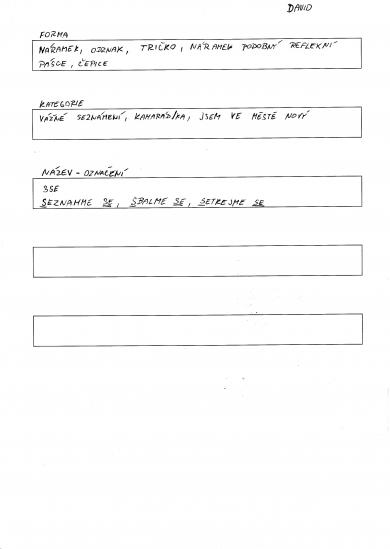 DAVID
FORMA
NÁRAMEK, ODZNAK, TRIČKO, NÁRAMEK PODOBNÝ REFLEXNÍ
PÁSCE, ČEPICE
KATEGORIE
VÁŽNÉ SEZNÁMENÍ, KAMARÁD/KA, JSEM VE MĚSTĚ NOVÝ
NÁZEV - OZNAČENÍ
3SE
SEZNAMME SE, SBALME SE, SETKEJME SE